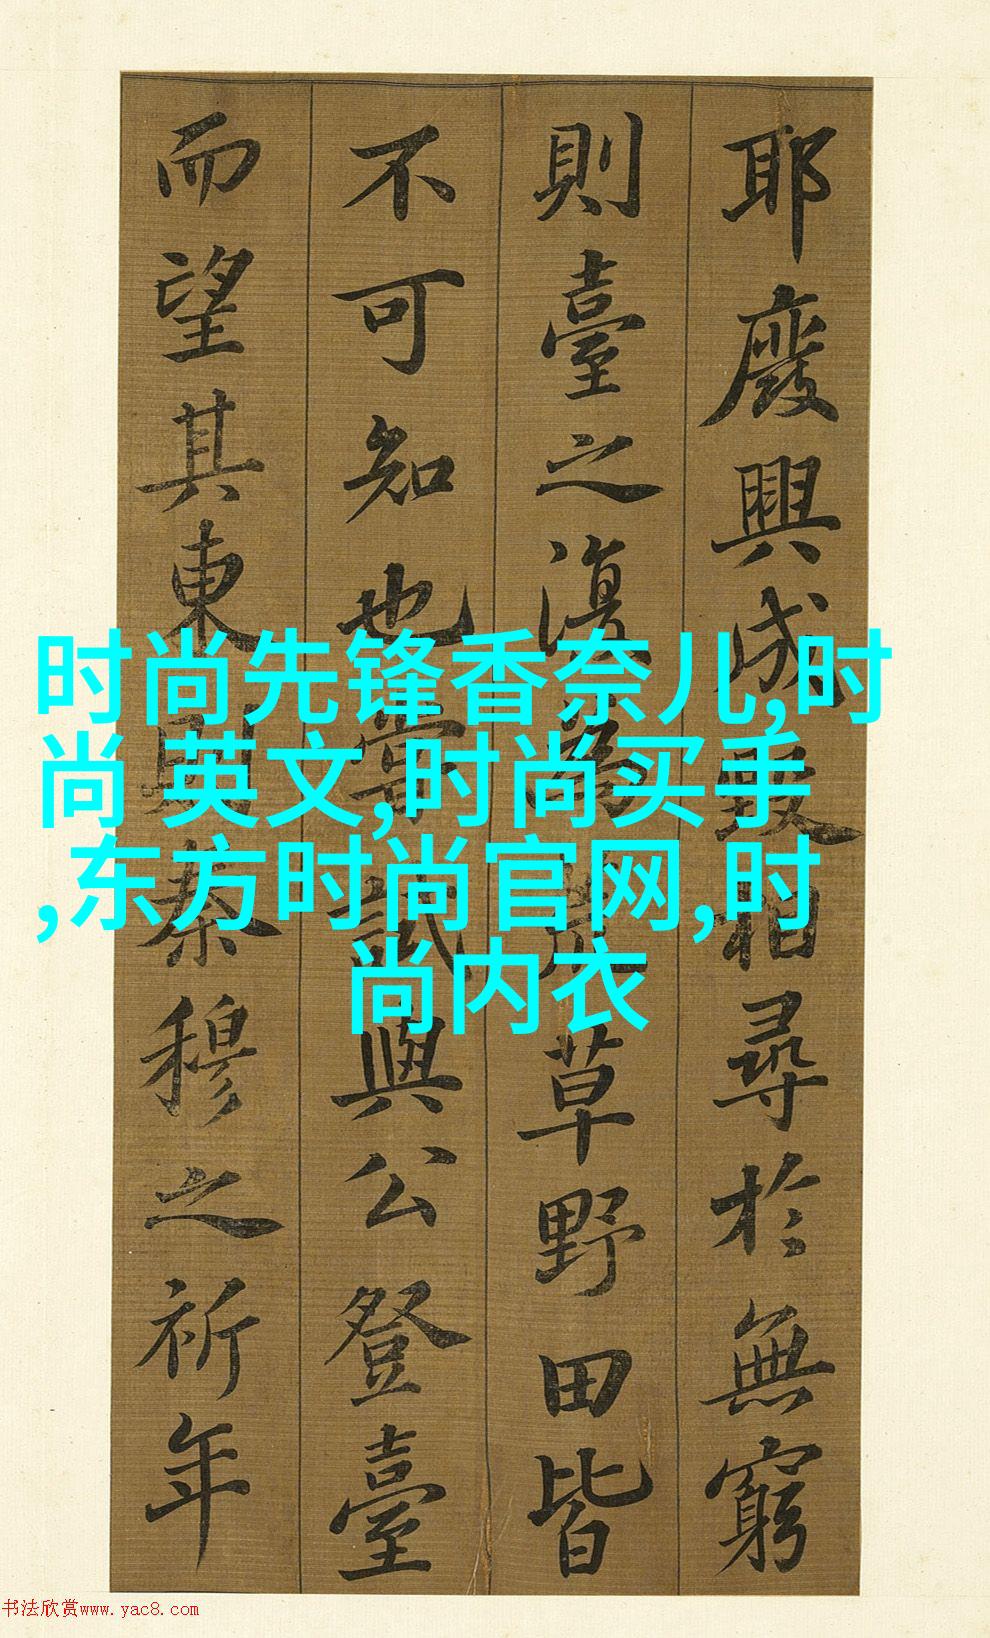 耶廢興成毀相尋於無窮
則臺之復為荒草野田皆
不可知也嘗試與公登臺
而望其東則秦穆之祈年
时尚先锋香奈儿,时
尚 英文,时尚买手
,东方时尚官网,时
尚内衣
书法欣赏www.yac8.com